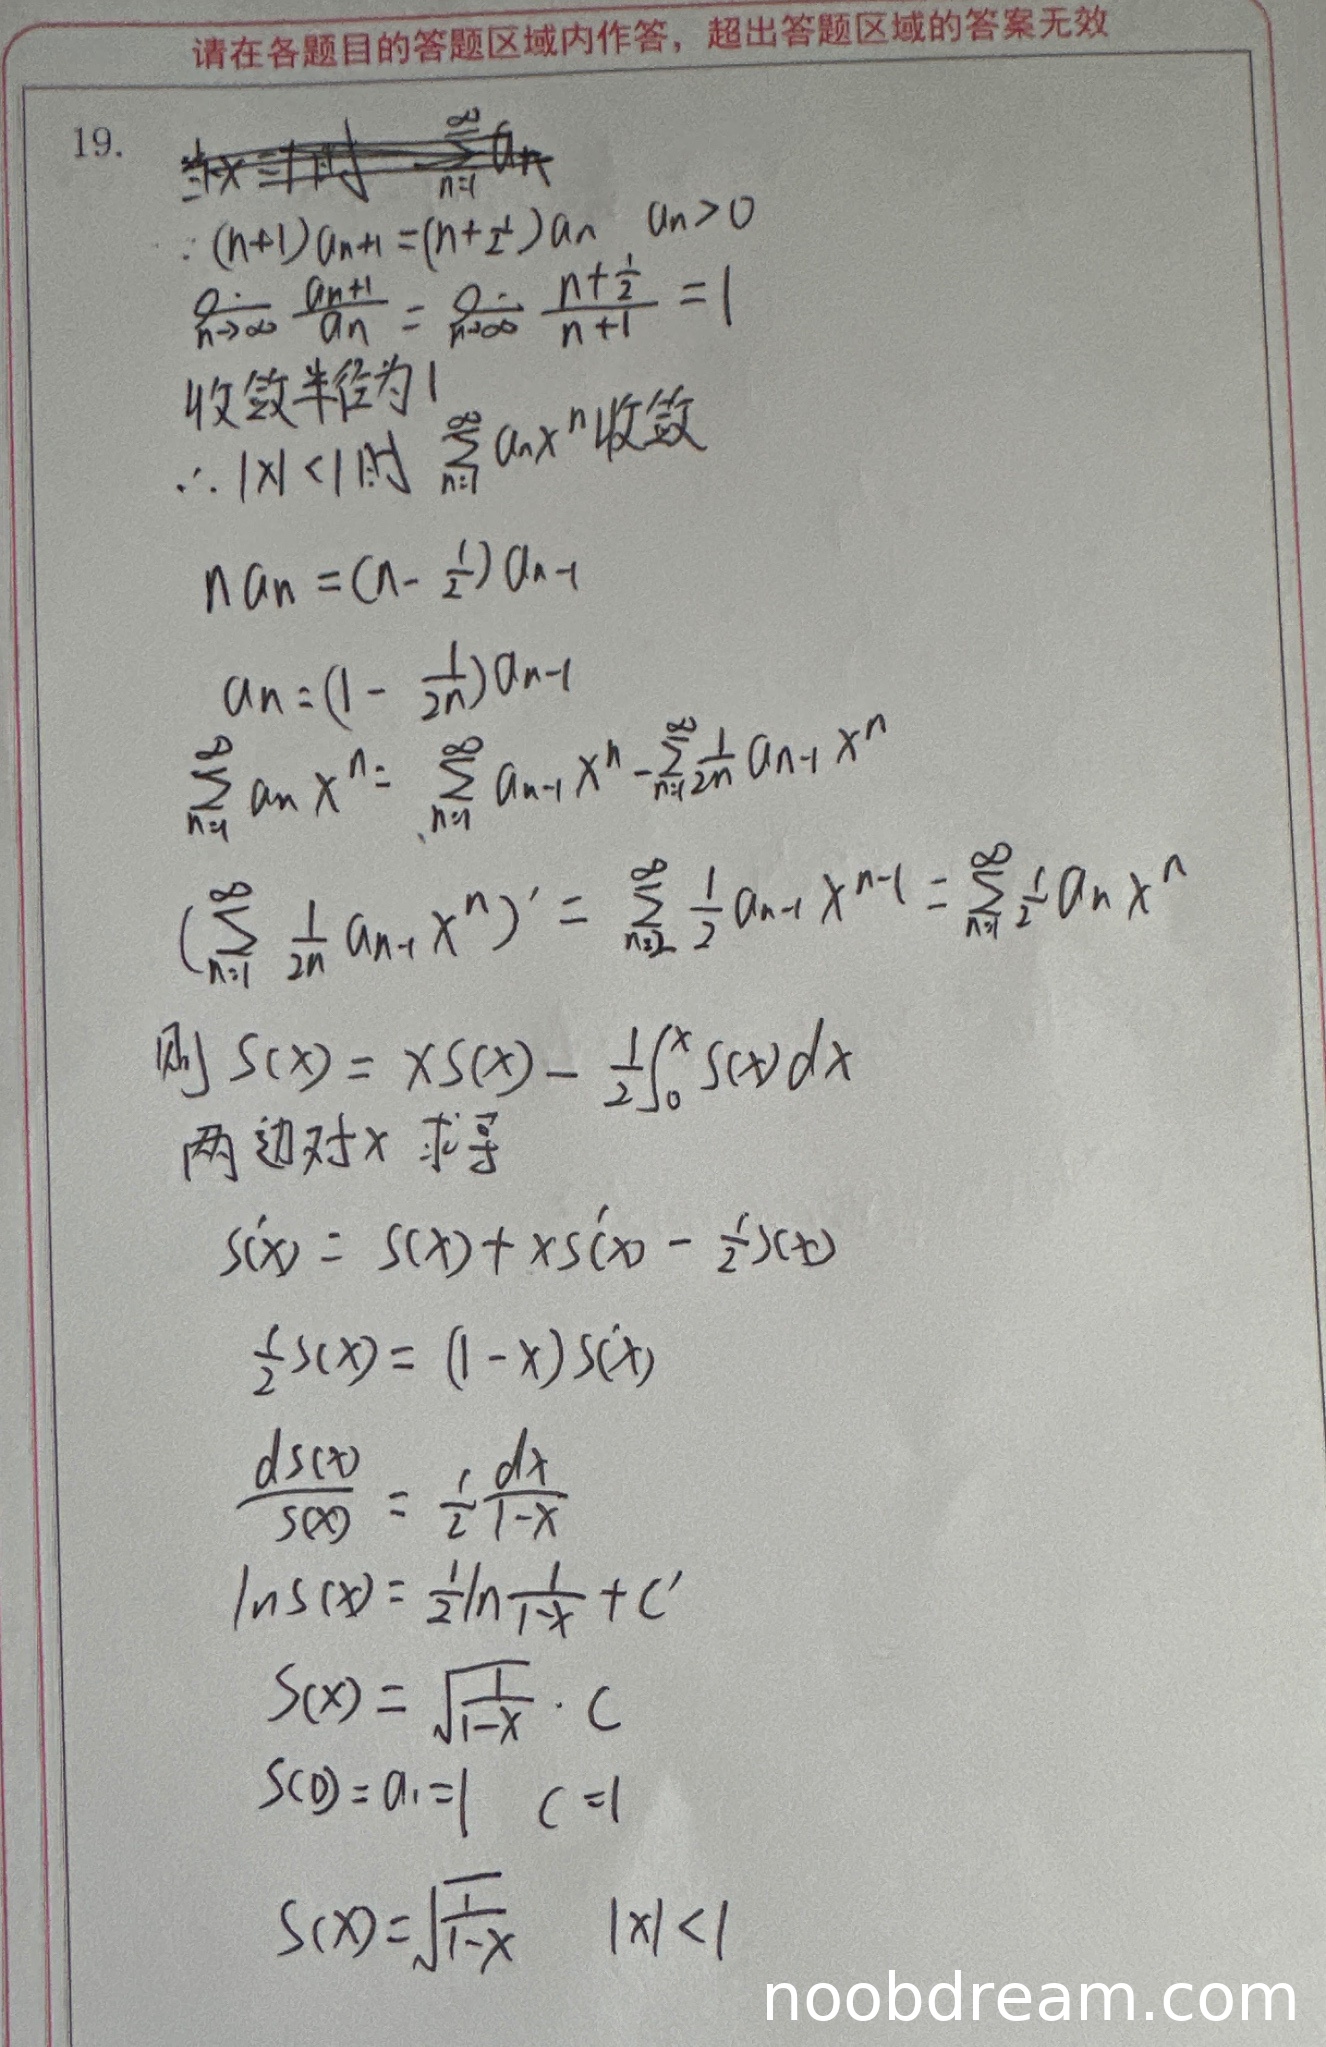 请在各题目的答题区域内作答，超出答题区域的答案无效
19.
∵(n+1)aₙ₊₁=(n+1/2)aₙ aₙ>0
lim n→∞ aₙ₊₁/aₙ = lim n→∞ (n+1/2)/(n+1) = 1
收敛半径为1
∴|x|<1时 ∑_{n=1}^∞ aₙxⁿ收敛
n aₙ = (n - 1/2) aₙ₋₁
aₙ = (1 - 1/2n) aₙ₋₁
∑_{n=1}^∞ aₙ xⁿ = ∑_{n=1}^∞ aₙ₋₁ xⁿ - ∑_{n=1}^∞ 1/2n aₙ₋₁ xⁿ
(∑_{n=1}^∞ 1/2n aₙ₋₁ xⁿ)' = ∑_{n=2}^∞ 1/2 aₙ₋₁ xⁿ⁻¹ = ∑_{n=1}^∞ 1/2 aₙ xⁿ
则 S(x) = xS(x) - 1/2 ∫₀ˣ S(x) dx
两边对x 求导
S'(x) = S(x) + xS'(x) - 1/2 S(x)
1/2 S(x) = (1-x) S'(x)
dS(x)/S(x) = 1/2 dx/(1-x)
ln S(x) = 1/2 ln 1/(1-x) + C'
S(x) = √(1/(1-x)) · C
S(0) = a₁ = 1 C = 1
S(x) = √(1/(1-x)) |x|<1
noobdream.com